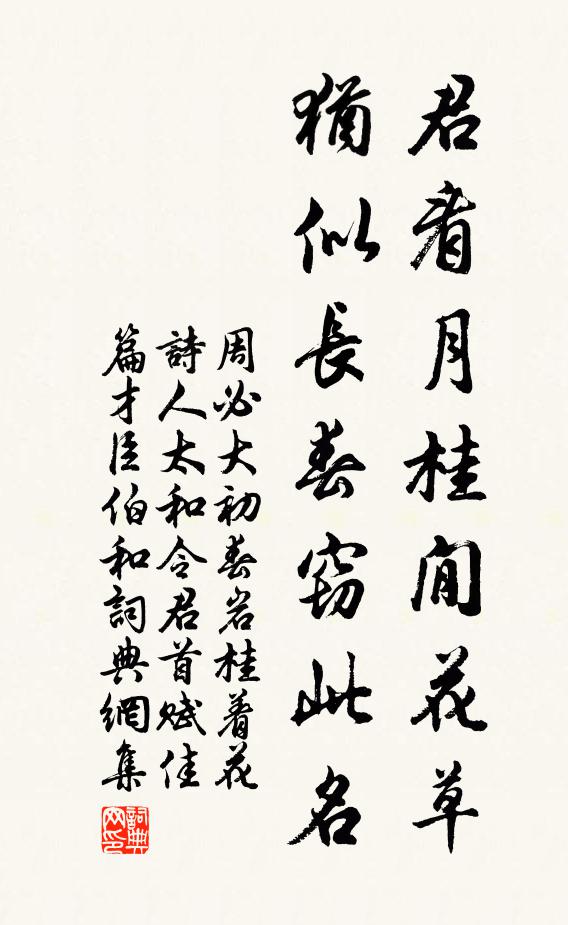 君看月桂閒花草
猶似長春竊此名
周必大初春岩桂着花
詩人太和令君首賦佳
篇才臣伯和詞典網集
詞典网印